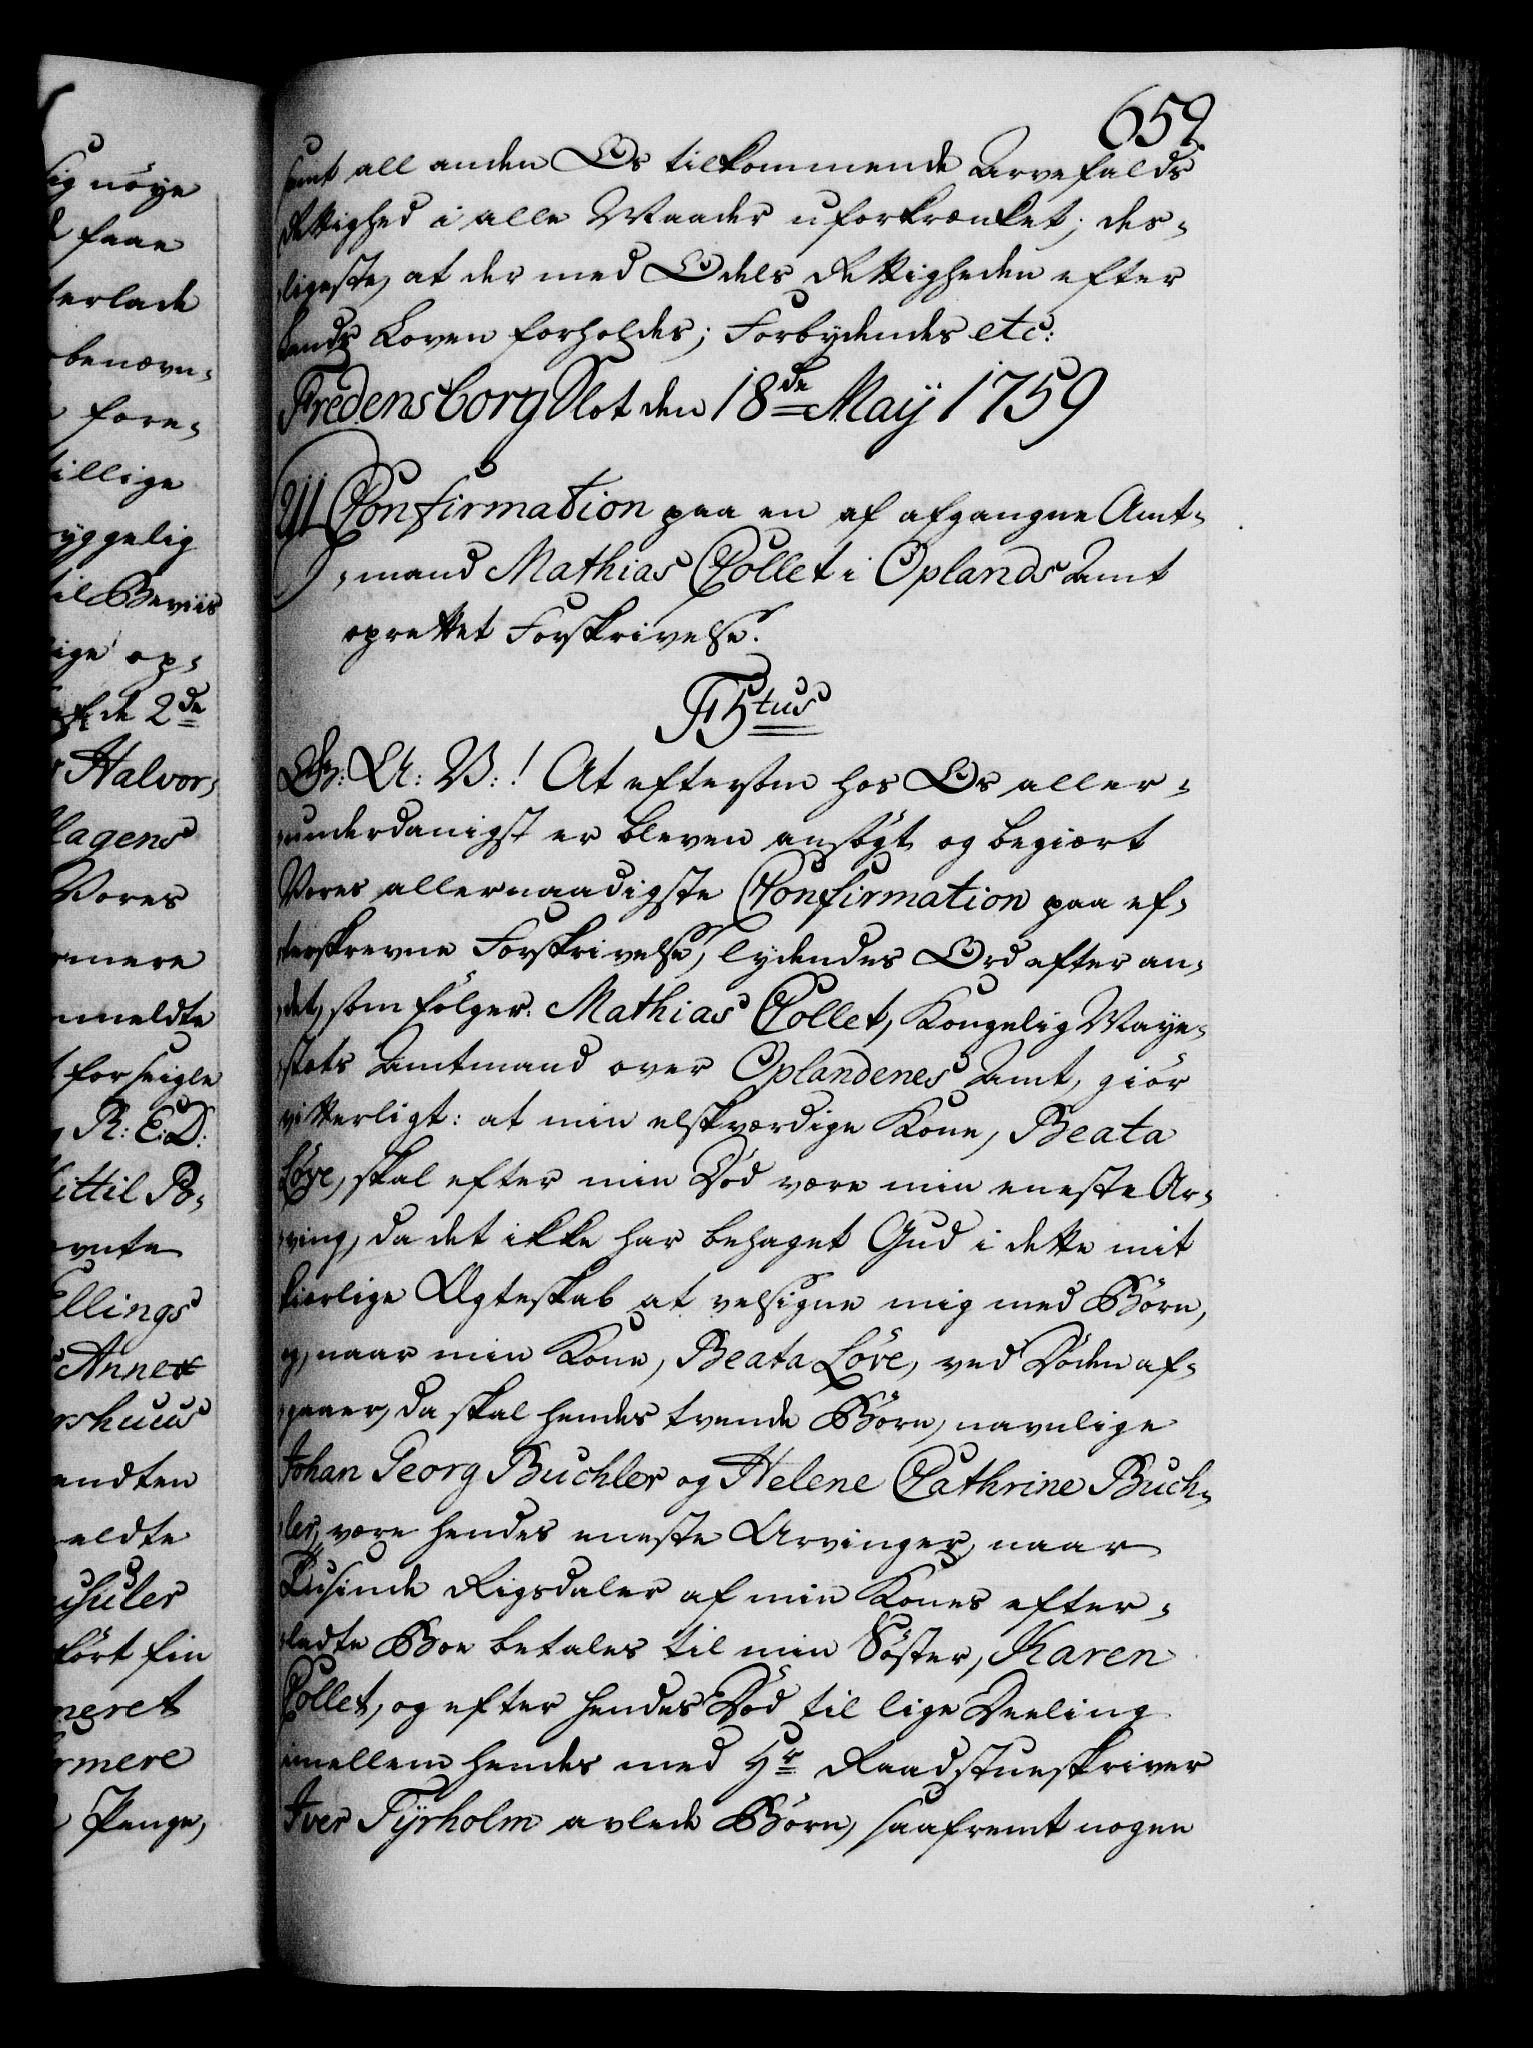 659.
samt all anden Os tilkommende Arvefalds
Rettighed i alle Maader uforkrænket; des-
ligeste, at der med Odels Rettigheden efter
Lands Loven forholdes; Forbydendes etc:
Fredensborg Slot den 18de May 1759
Confirmation paa en af afgangne Amt-
mand Mathias Collet i Oplands Amt
oprettet Forskrivelse.
F 5tus
Gr: A: V:! At eftersom hos Os aller-
underdanigst er bleven ansögt og begiært
Vores allernaadigste Confirmation paa ef-
terskrevne Forskrivelse, lydendes Ord efter an-
det, som fölger. Mathias Collet, Kongelig Maye-
stæts Amtmand over Oplandenes Amt, giör
vitterligt: at min elskværdige Kone, Beata
Löve, skal efter min Död være min eneste Ar-
ving, da det ikke har behaget Gud i dette mit
kierlige Ægteskab at velsigne mig med Börn,
og, naar min Kone, Beata Löve, ved Döden af-
gaaer, da skal hendes tvende Börn, navnlige
Johan Georg Buchler og Helene Cathrine Buch-
ler, være hendes eneste Arvinger, naar
Tusinde Rigsdaler af min Kones efter-
ladte Boe betales til min Söster, Karen
Collet, og efter hendes Död til lige Deeling
imellem hendes med Hr Raadstueskriver
Iver Tÿrholm avlede Börn, saafremt nogen
sig nöye
faae
terlade
benævn-
fore-
tillige
yggelig
til Beviis
lige op-
af de 2de
Halvor-
Hagens
Vores
mere
meldte
forseigle
R: E: D:
Kittil Po-
nte
Ellings
Anne
rshuus
endten
eldte
nsuler
fört fin
neret
rmere
Penge,